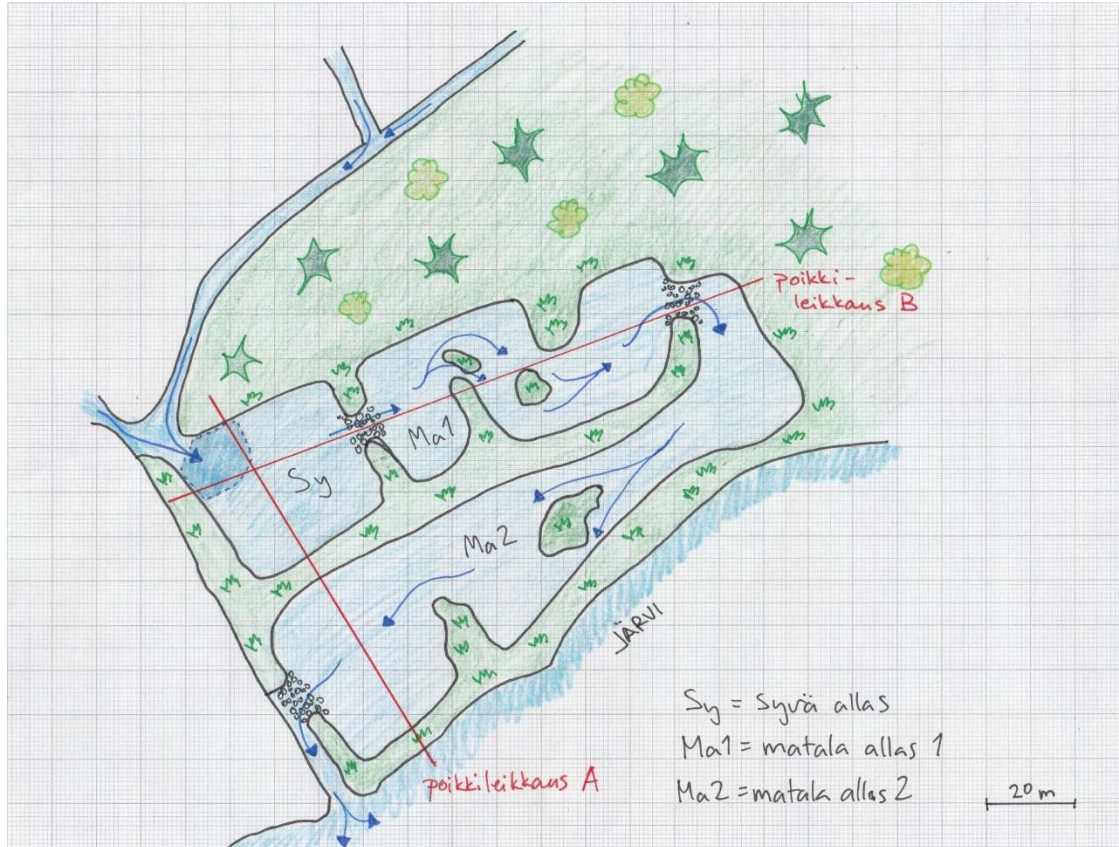 poikki-
leikkaus B
Ma1
Sy
Ma2
JÄRVI
poikkileikkaus A
Sy = syvä allas
Ma1 = matala allas 1
Ma2 = matala allas 2
20 m